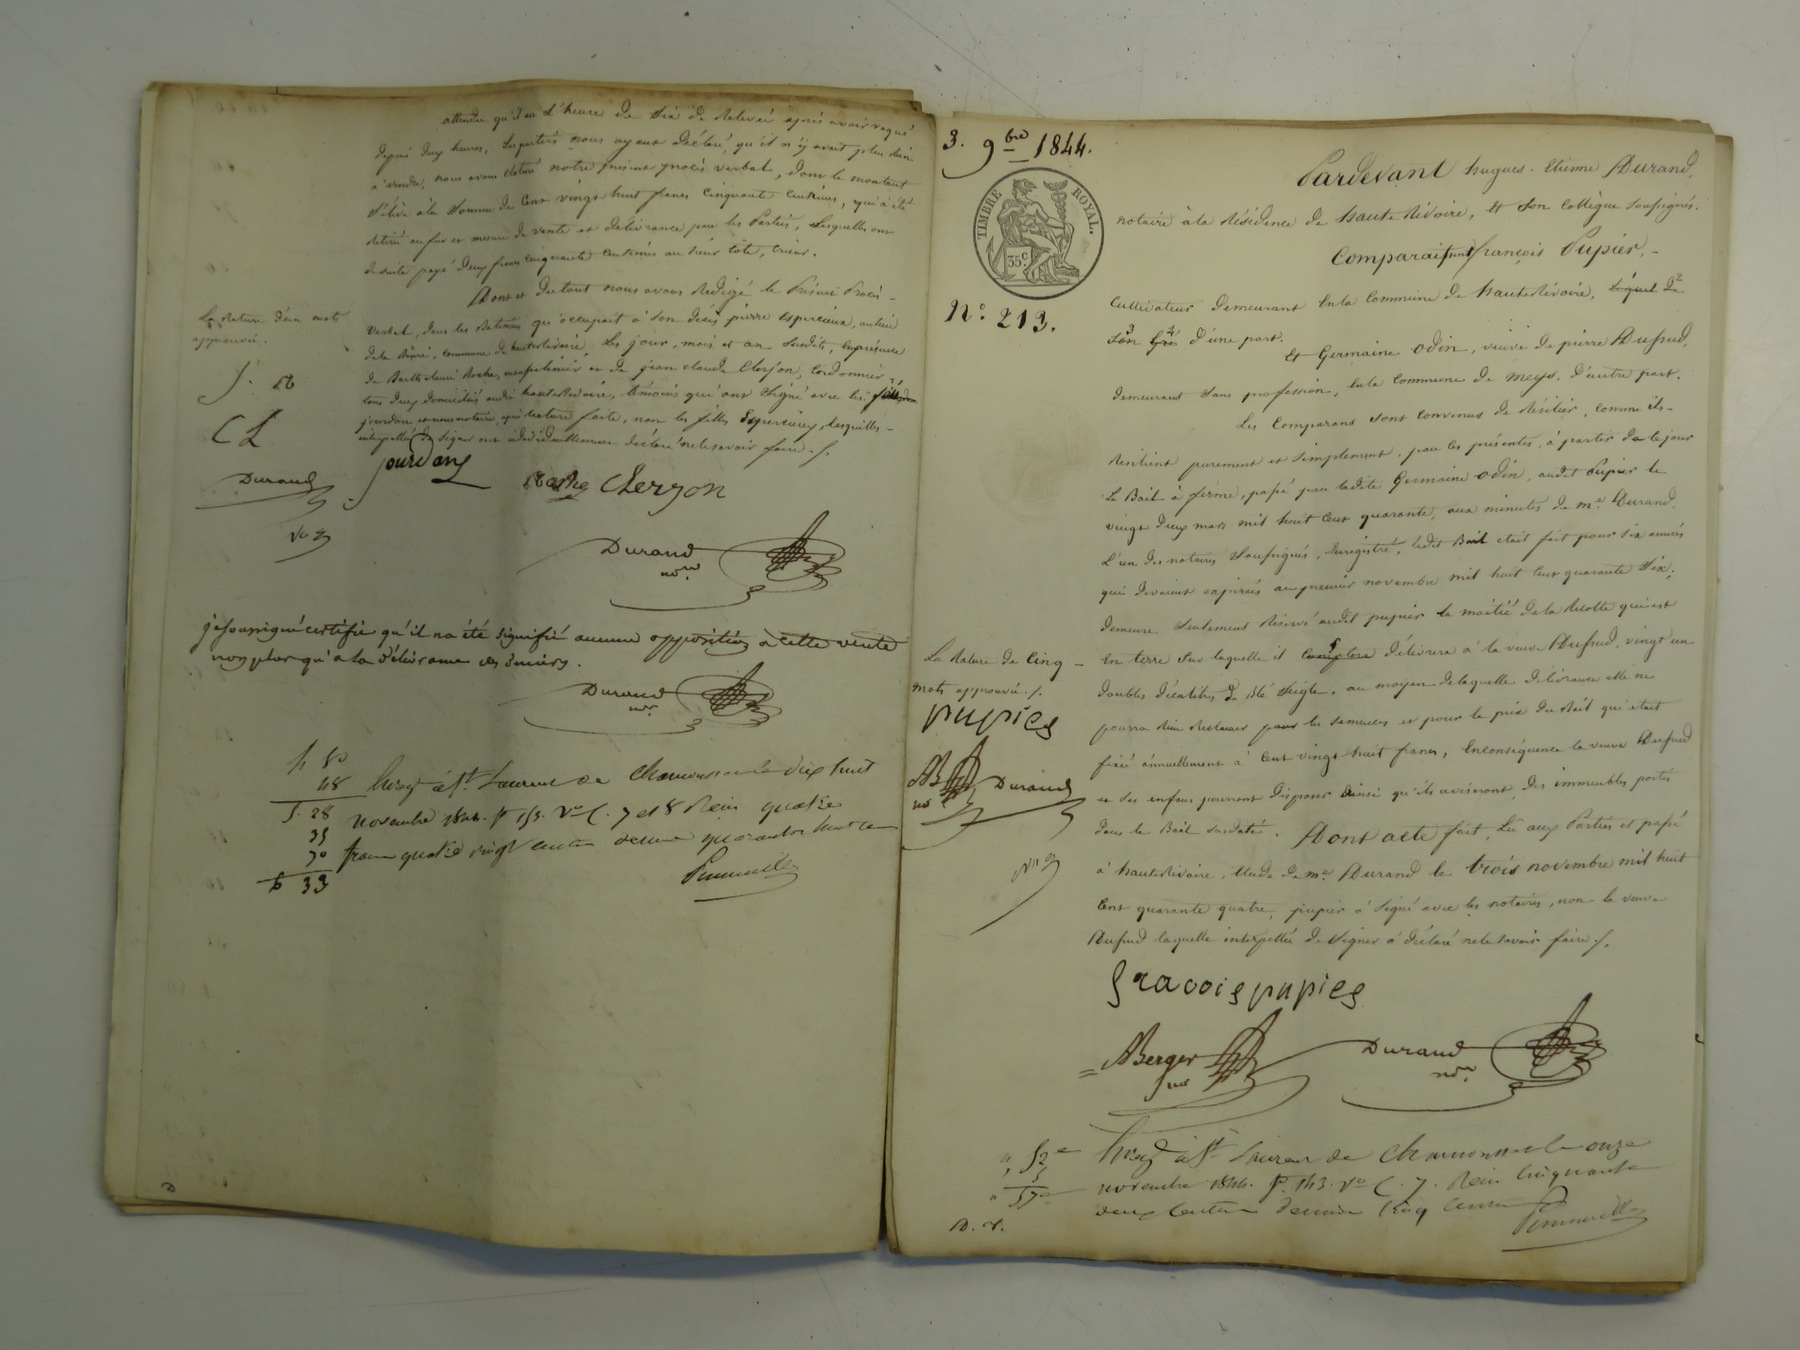 attendu qu'il est l'heure de six de relevée après avoir vaqué
depuis deux heures, les parties nous ayant déclaré, qu'il n'y avait plus rien
à vendre, nous avons cloturé notre présent procès verbal, dont le montant
s'élève à la somme de cent vingt huit francs cinquante centimes, qui a été
retirée au fur et mesure de vente et délivrance par les Parties, lesquelles ont
de suite payé deux francs cinquante centimes au sieur côte, crieur.
Dont et du tout nous avons rédigé le Présent Procès-
verbal, dans les Batiments qu'occupait à son décès pierre Espercieux, au lieu
de la commune de hauterivoire, les jour, mois et an susdits, en présence
de Barthelemi Roche, et de jean claude Clerjon, Cordonnier,
tous deux domiciliés audit hauterivoire, témoins qui ont signé avec les
jourdan et nous notaire, après lecture faite, non les filles Espercieux, lesquelles -
interpellées de signer ont individuellement déclaré ne le savoir faire ./.
La Rature d'un mot
approuvée.
J. R
C L
Durand
jourdan
Roche Clerzon
Durand
not.re
je soussigné certifie qu'il na été signifié aucune opposition à cette vente
non plus qu'a la délivrance des deniers.
Durand
not.
f 80
48
1. 28
35
70
f 33
Enreg à St. Laurent de Chamousset le dix huit
novembre 1844. f° 153. V° C. 7 et 8 Reçu quatre
francs quatre vingt centimes decime quarante huit centimes
3. 9bre 1844.
TIMBRE ROYAL.
35 c
N.° 213.
Pardevant hugues-Etienne Durand,
notaire à la Résidence de hauterivoire, et son collègue soussignés.
Comparaissent françois Pupier, -
Cultivateur demeurant en la Commune de hauterivoire, lequel de
son gré d'une part.
Et Germaine Odin, veuve de pierre Dufaud,
demeurant sans profession, en la Commune de meys, d'autre part.
Les Comparans sont convenus de résilier, comme ils-
résilient purement et simplement, par les présentes, à partir de ce jour
Le Bail à ferme, passé par ladite Germaine Odin, audit Pupier le
vingt deux mars mil huit cent quarante, aux minutes de me. Durand,
l'un des notaires soussignés, Enregistré, ledit Bail etait fait pour six années
qui devaient expirer au premier novembre mil huit cent quarante six;
demeure seulement réservé audit pupier la moitié de la récolte qui est
en terre sur laquelle il délivrera à la veuve Dufaud, vingt un
doubles décalitres de blé seigle, au moyen de laquelle délivrance elle ne
pourra rien réclamer pour les semences et pour le prix du Bail qui etait
fixé annuellement à cent vingt huit francs, En conséquence la veuve Dufaud
et ses enfans pourront disposer ainsi qu'ils aviseront, des immeubles portés
dans le Bail susdaté. Dont acte fait, lû aux Parties et passé
à hauterivoire, étude de me. Durand le trois novembre mil huit
cent quarante quatre, pupier a signé avec les notaires, non la veuve
Dufaud laquelle interpellée de signer a déclaré ne le savoir faire ./.
La Rature de Cinq -
mots approuvée ./.
pupier
AB
not
Durand
fracois pupier
ABerger
not
Durand
not.re
52 c
5
57 c
Enreg à St Laurent de Chamousset le onze
novembre 1844. f°. 143. V° C. 7. Reçu Cinquante
deux Centimes decime Cinq Centimes
D. R.